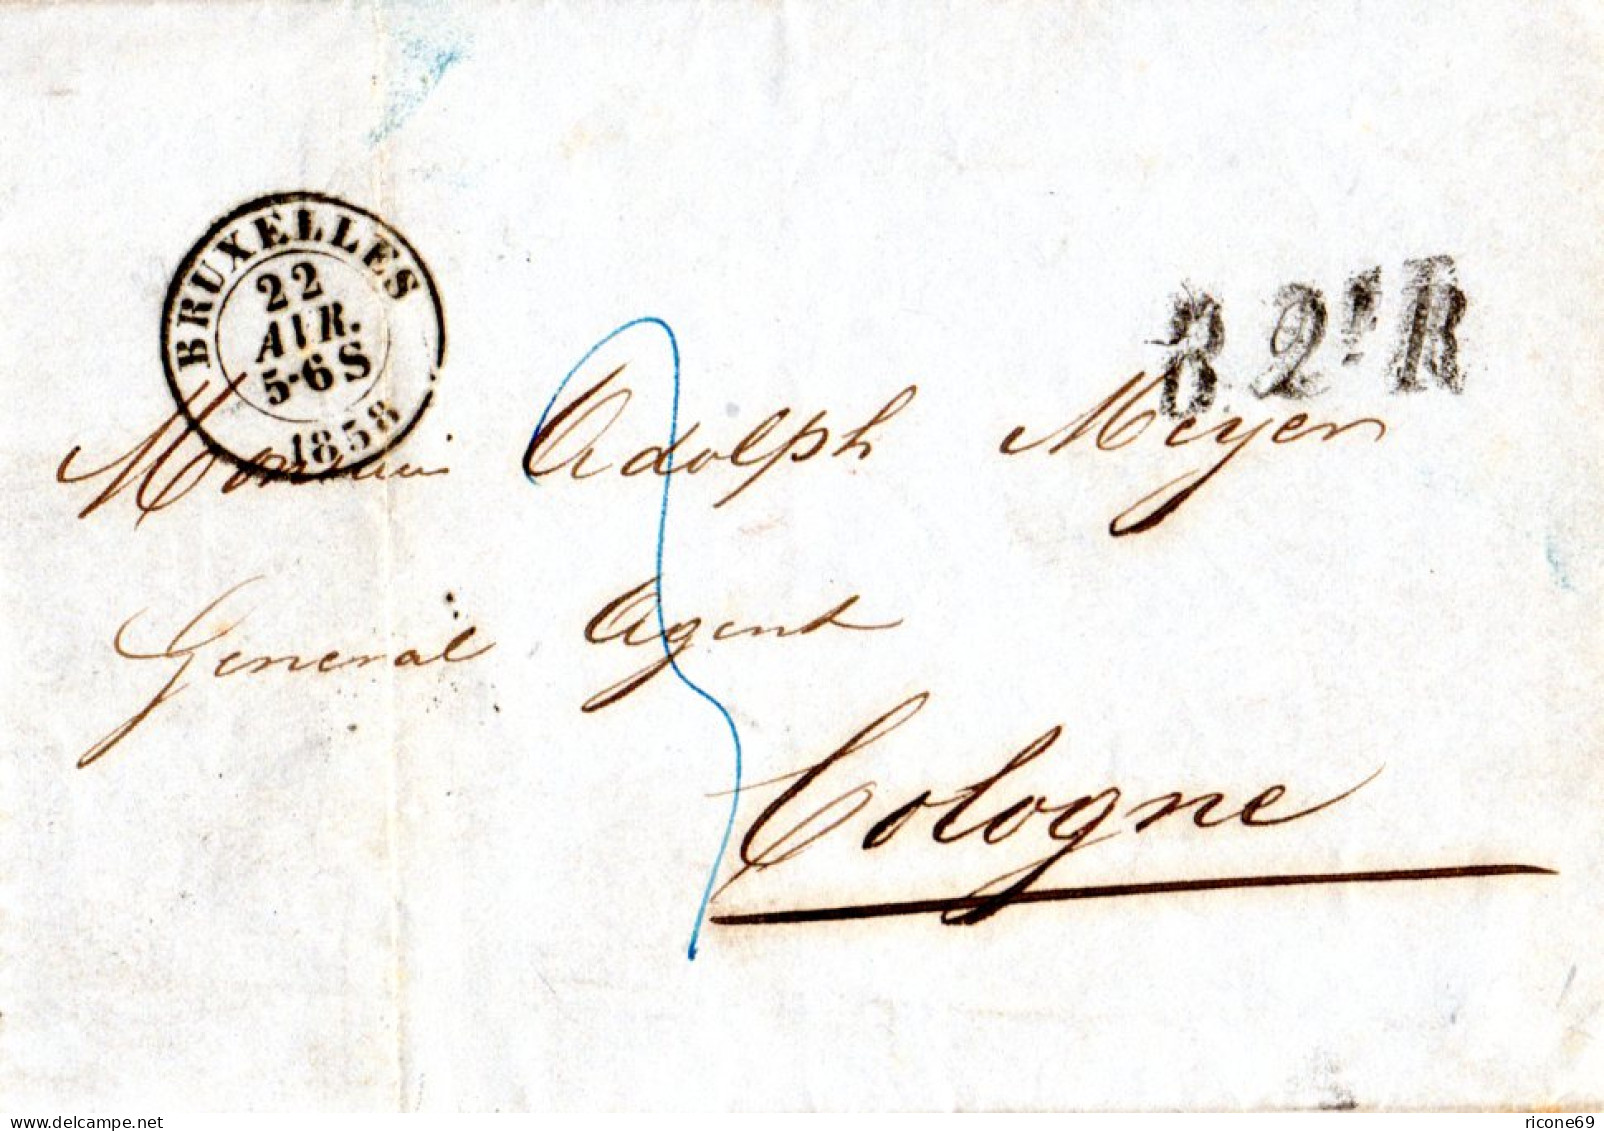 BRUXELLES
22
AVR.
5-6 S
1858
B. 2ᵉ R
Monsieur Adolph Meyer
General Agent
Cologne
3
delcampe.net
ricone69